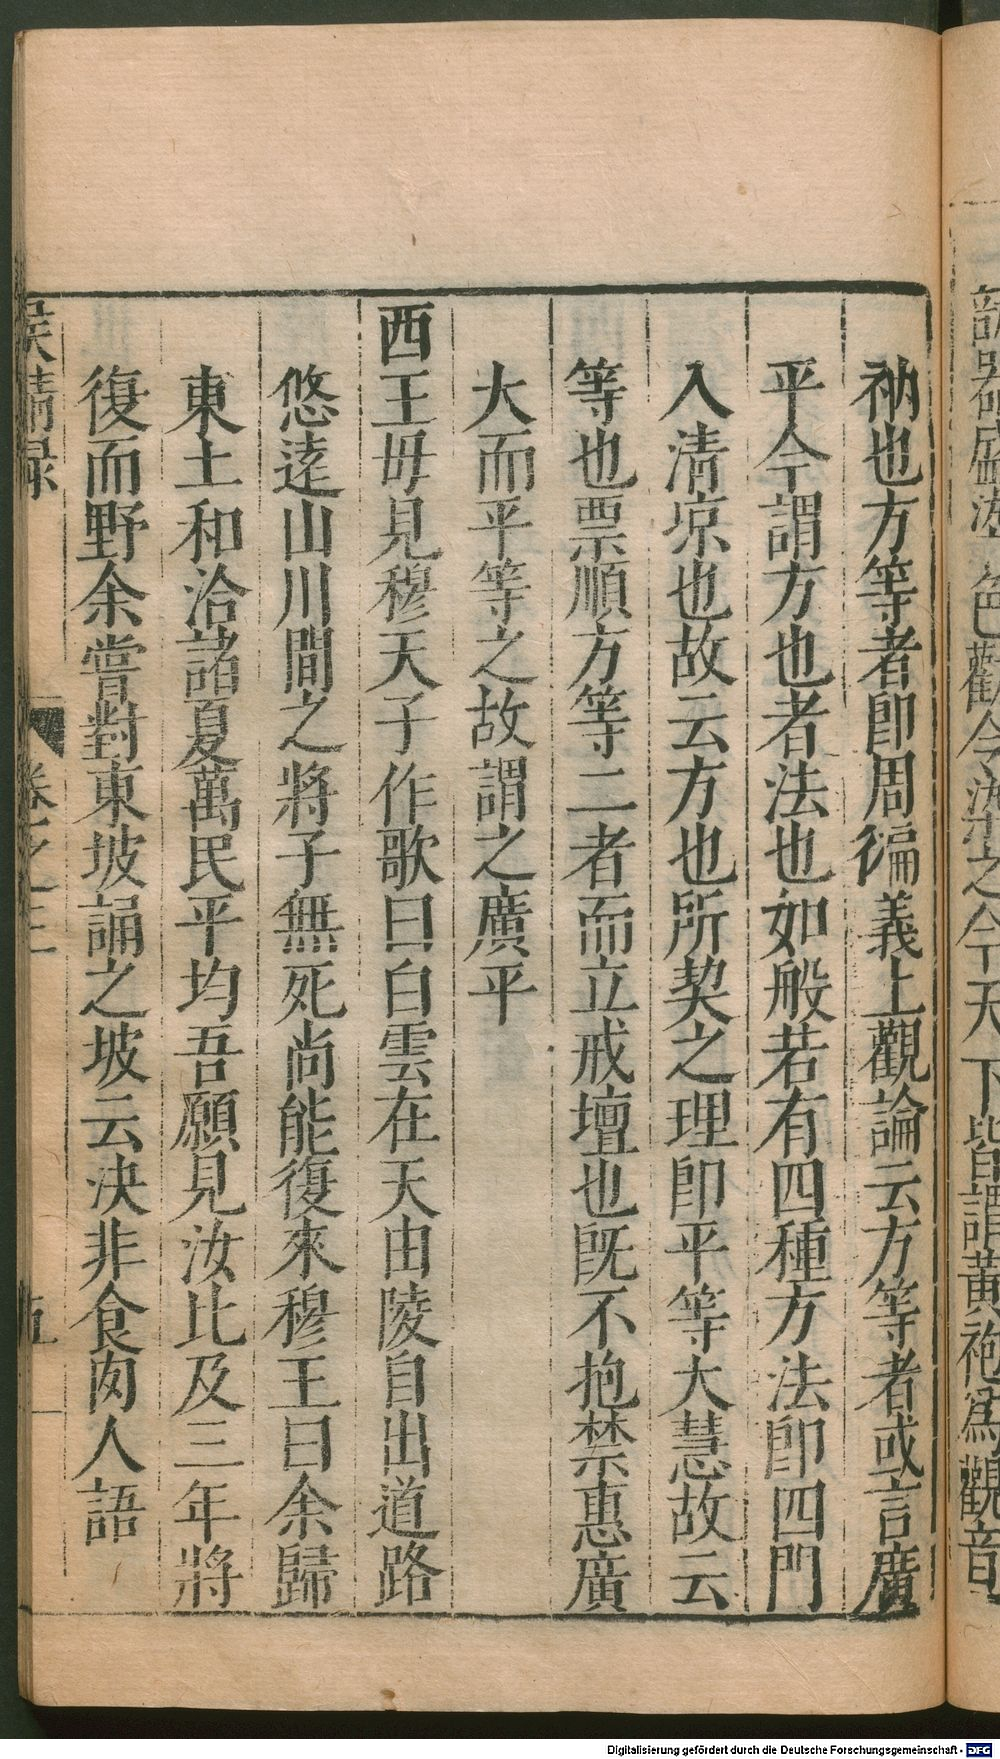 部器盛游
色觀今
之今天下皆謂黃袍爲觀音
衲也方等者卽周徧義上觀論云方等者或言廣
平今謂方也者法也如般若有四種方法卽四門
入清凉也故云方也所契之理卽平等大慧故云
等也票順方等二者而立戒壇也旣不抱禁惠廣
大而平等之故謂之廣平
西王毋見穆天子作歌曰白雲在天由陵自出道路
悠遠山川間之將子無死尚能復來穆王曰余歸
東土和洽諸夏萬民平均吾願見汝比及三年將
復而野余嘗對東坡誦之坡云決非食肉人語
侯鯖録
卷之三
五
Digitalisierung gefördert durch die Deutsche Forschungsgemeinschaft - DFG